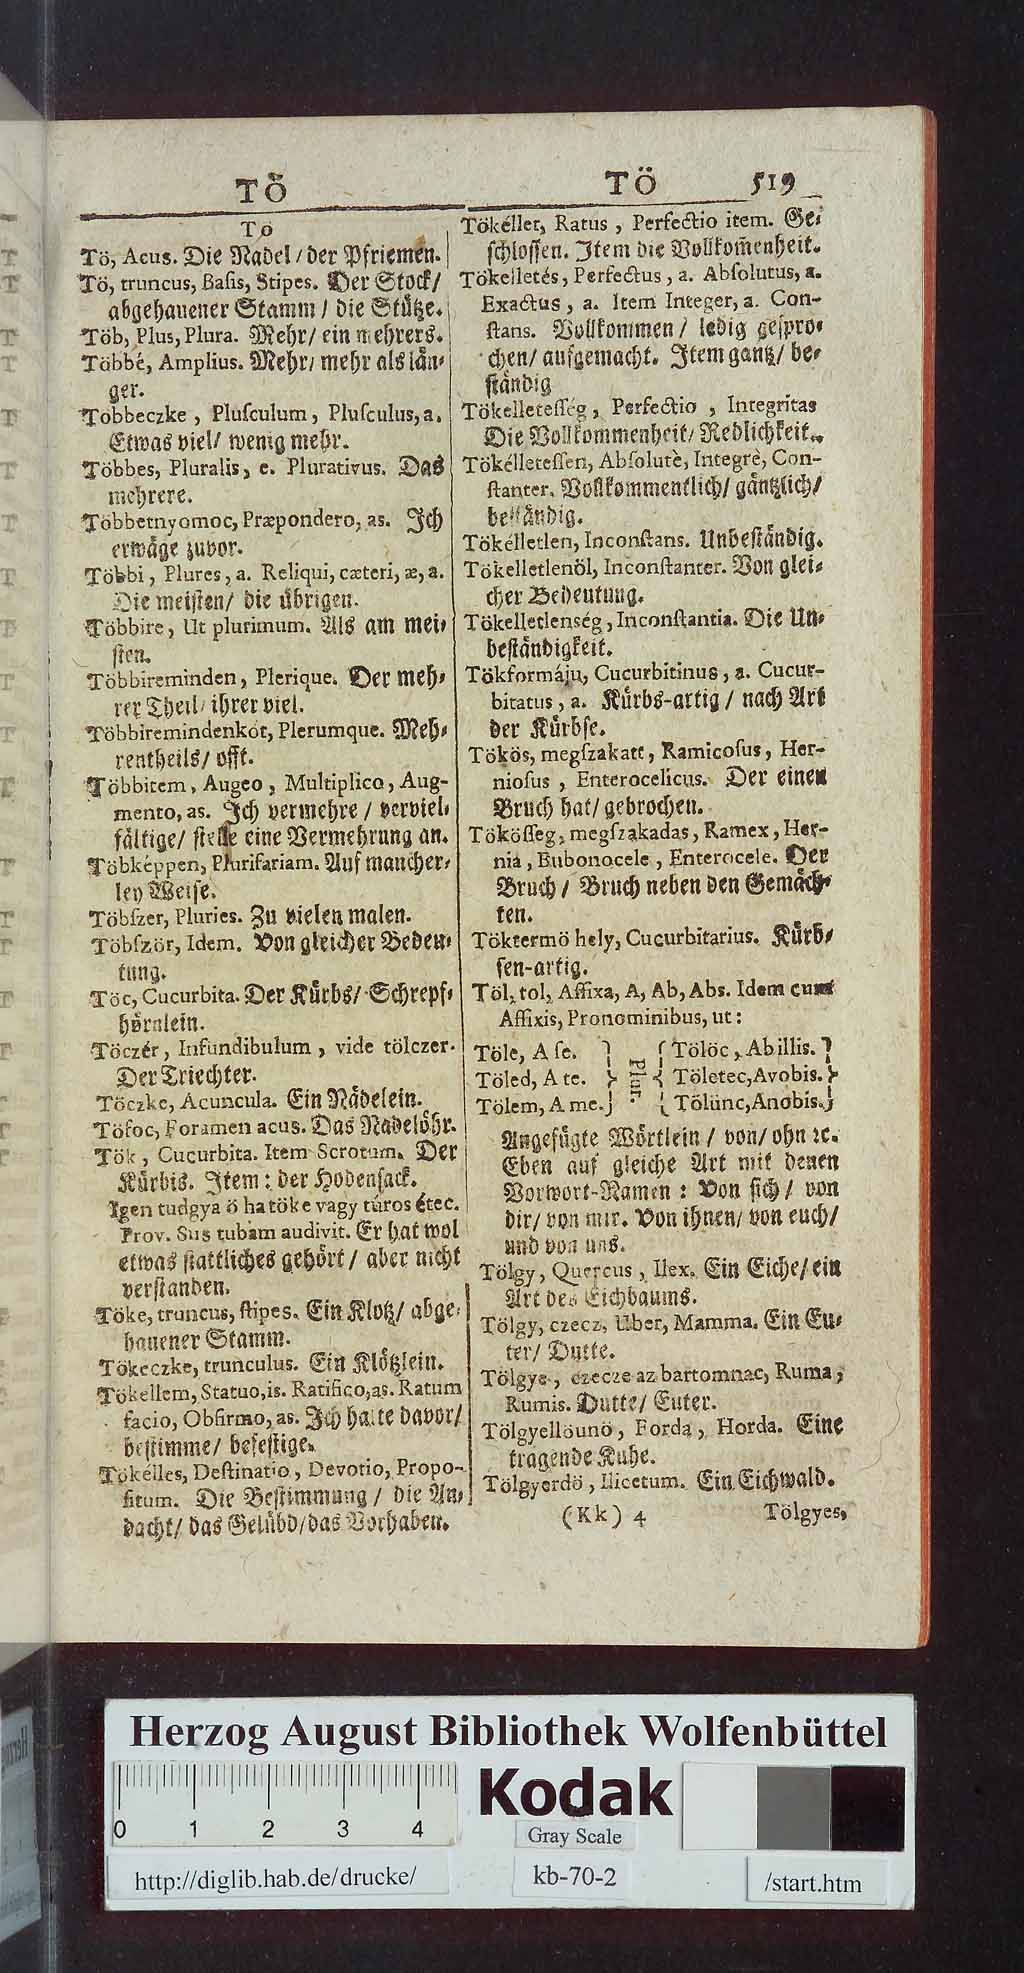 TÖ
TÖ 519
Tö
Tö, Acus. Die Nadel / der Pfriemen.
Tö, truncus, Basis, Stipes. Der Stock/
abgehauener Stamm / die Stütze.
Töb, Plus, Plura. Mehr/ ein mehrers.
Többé, Amplius. Mehr/ mehr als län-
ger.
Többeczke, Plusculum, Plusculus, a.
Etwas viel/ wenig mehr.
Többes, Pluralis, e. Plurativus. Das
mehrere.
Többetnyomoc, Præpondero, as. Ich
erwäge zuvor.
Többi, Plures, a. Reliqui, cæteri, æ, a.
Die meisten/ die übrigen.
Többire, Ut plurimum. Als am mei-
sten.
Többireminden, Plerique. Der meh-
rer Theil/ ihrer viel.
Többiremindenkót, Plerumque. Meh-
rentheils/ offt.
Többitem, Augeo, Multiplico, Aug-
mento, as. Ich vermehre / verviel-
fältige/ stelle eine Vermehrung an.
Töbképpen, Plurifariam. Auf mancher-
ley Weise.
Töbſzer, Pluries. Zu vielen malen.
Töbſzör, Idem. Von gleicher Bedeu-
tung.
Töc, Cucurbita. Der Kürbs/ Schrepf-
hörnlein.
Töczér, Infundibulum, vide tölczer.
Der Triechter.
Töczke, Acuncula. Ein Nädelein.
Töfoc, Foramen acus. Das Nadelöhr.
Tök, Cucurbita. Item Scrotum. Der
Kürbis. Item: der Hodensack.
Igen tudgya ö ha töke vagy túros étec.
Prov. Sus tubam audivit. Er hat wol
etwas stattliches gehört/ aber nicht
verstanden.
Töke, truncus, stipes. Ein Klotz/ abge-
hauener Stamm.
Tökeczke, trunculus. Ein Klötzlein.
Tökellem, Statuo, is. Ratifico, as. Ratum
facio, Obfirmo, as. Ich halte davor/
bestimme/ befestige.
Tökélles, Destinatio, Devotio, Propo-
situm. Die Bestimmung / die An-
dacht/ das Gelübd/ das Vorhaben.
Tökéllet, Ratus, Perfectio item. Ge-
schlossen. Item die Vollkom̃enheit.
Tökelletés, Perfectus, a. Abſolutus, a.
Exactus, a. Item Integer, a. Con-
stans. Vollkommen / ledig gespro-
chen/ ausgemacht. Item gantz/ be-
ständig
Tökelleteſſég, Perfectio, Integritas
Die Vollkommenheit/ Redlichkeit.
Tökélleteſſen, Abſolutè, Integrè, Con-
stanter. Vollkommentlich/ gäntzlich/
beständig.
Tökélletlen, Inconſtans. Unbeständig.
Tökelletlenöl, Inconſtanter. Von glei-
cher Bedeutung.
Tökelletlenség, Inconſtantia. Die Un-
beständigkeit.
Tökformáju, Cucurbitinus, a. Cucur-
bitatus, a. Kürbs-artig / nach Art
der Kürbse.
Tökös, megſzakatt, Ramicoſus, Her-
nioſus, Enterocelicus. Der einen
Bruch hat/ gebrochen.
Tökösſeg, megſzakadas, Ramex, Her-
nia, Bubonocele, Enterocele. Der
Bruch / Bruch neben den Gemäch-
ten.
Töktermö hely, Cucurbitarius. Kürb-
sen-artig.
Töl, tol, Affixa, A, Ab, Abs. Idem cum
Affixis, Pronominibus, ut:
Töle, A ſe. } { Tölöc, Ab illis. }
Töled, A te. } Plur. { Töletec, Avobis. }
Tölem, A me. } { Tölünc, Anobis. }
Angefügte Wörtlein / von/ ohn ꝛc.
Eben auf gleiche Art mit denen
Vorwort-Namen: Von sich / von
dir/ von mir. Von ihnen/ von euch/
und von uns.
Tölgy, Quercus, Ilex. Ein Eiche/ ein
Art des Eichbaums.
Tölgy, czecz, Uber, Mamma. Ein Eu-
ter/ Dutte.
Tölgye, czecze az bartomnac, Ruma,
Rumis. Dutte/ Euter.
Tölgyellöunö, Forda, Horda. Eine
tragende Kuhe.
Tölgyerdö, Ilicetum. Ein Eichwald.
(Kk) 4 Tölgyes,
Herzog August Bibliothek Wolfenbüttel
0 1 2 3 4
Kodak
Gray Scale
http://diglib.hab.de/drucke/
kb-70-2
/start.htm